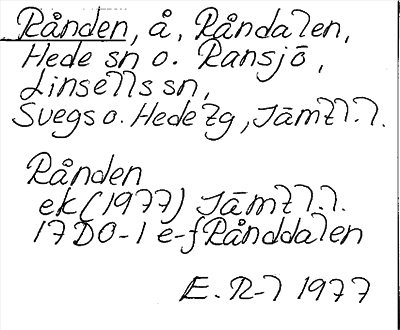 Rånden, å, Råndalen,
Hede sn o. Ransjö,
Linsells sn,
Svegs o. Hede tg, Jämtl.l.
Rånden
ek (1977) Jämtl.l.
17D0-1 e-f Rånddalen
E. R-l 1977